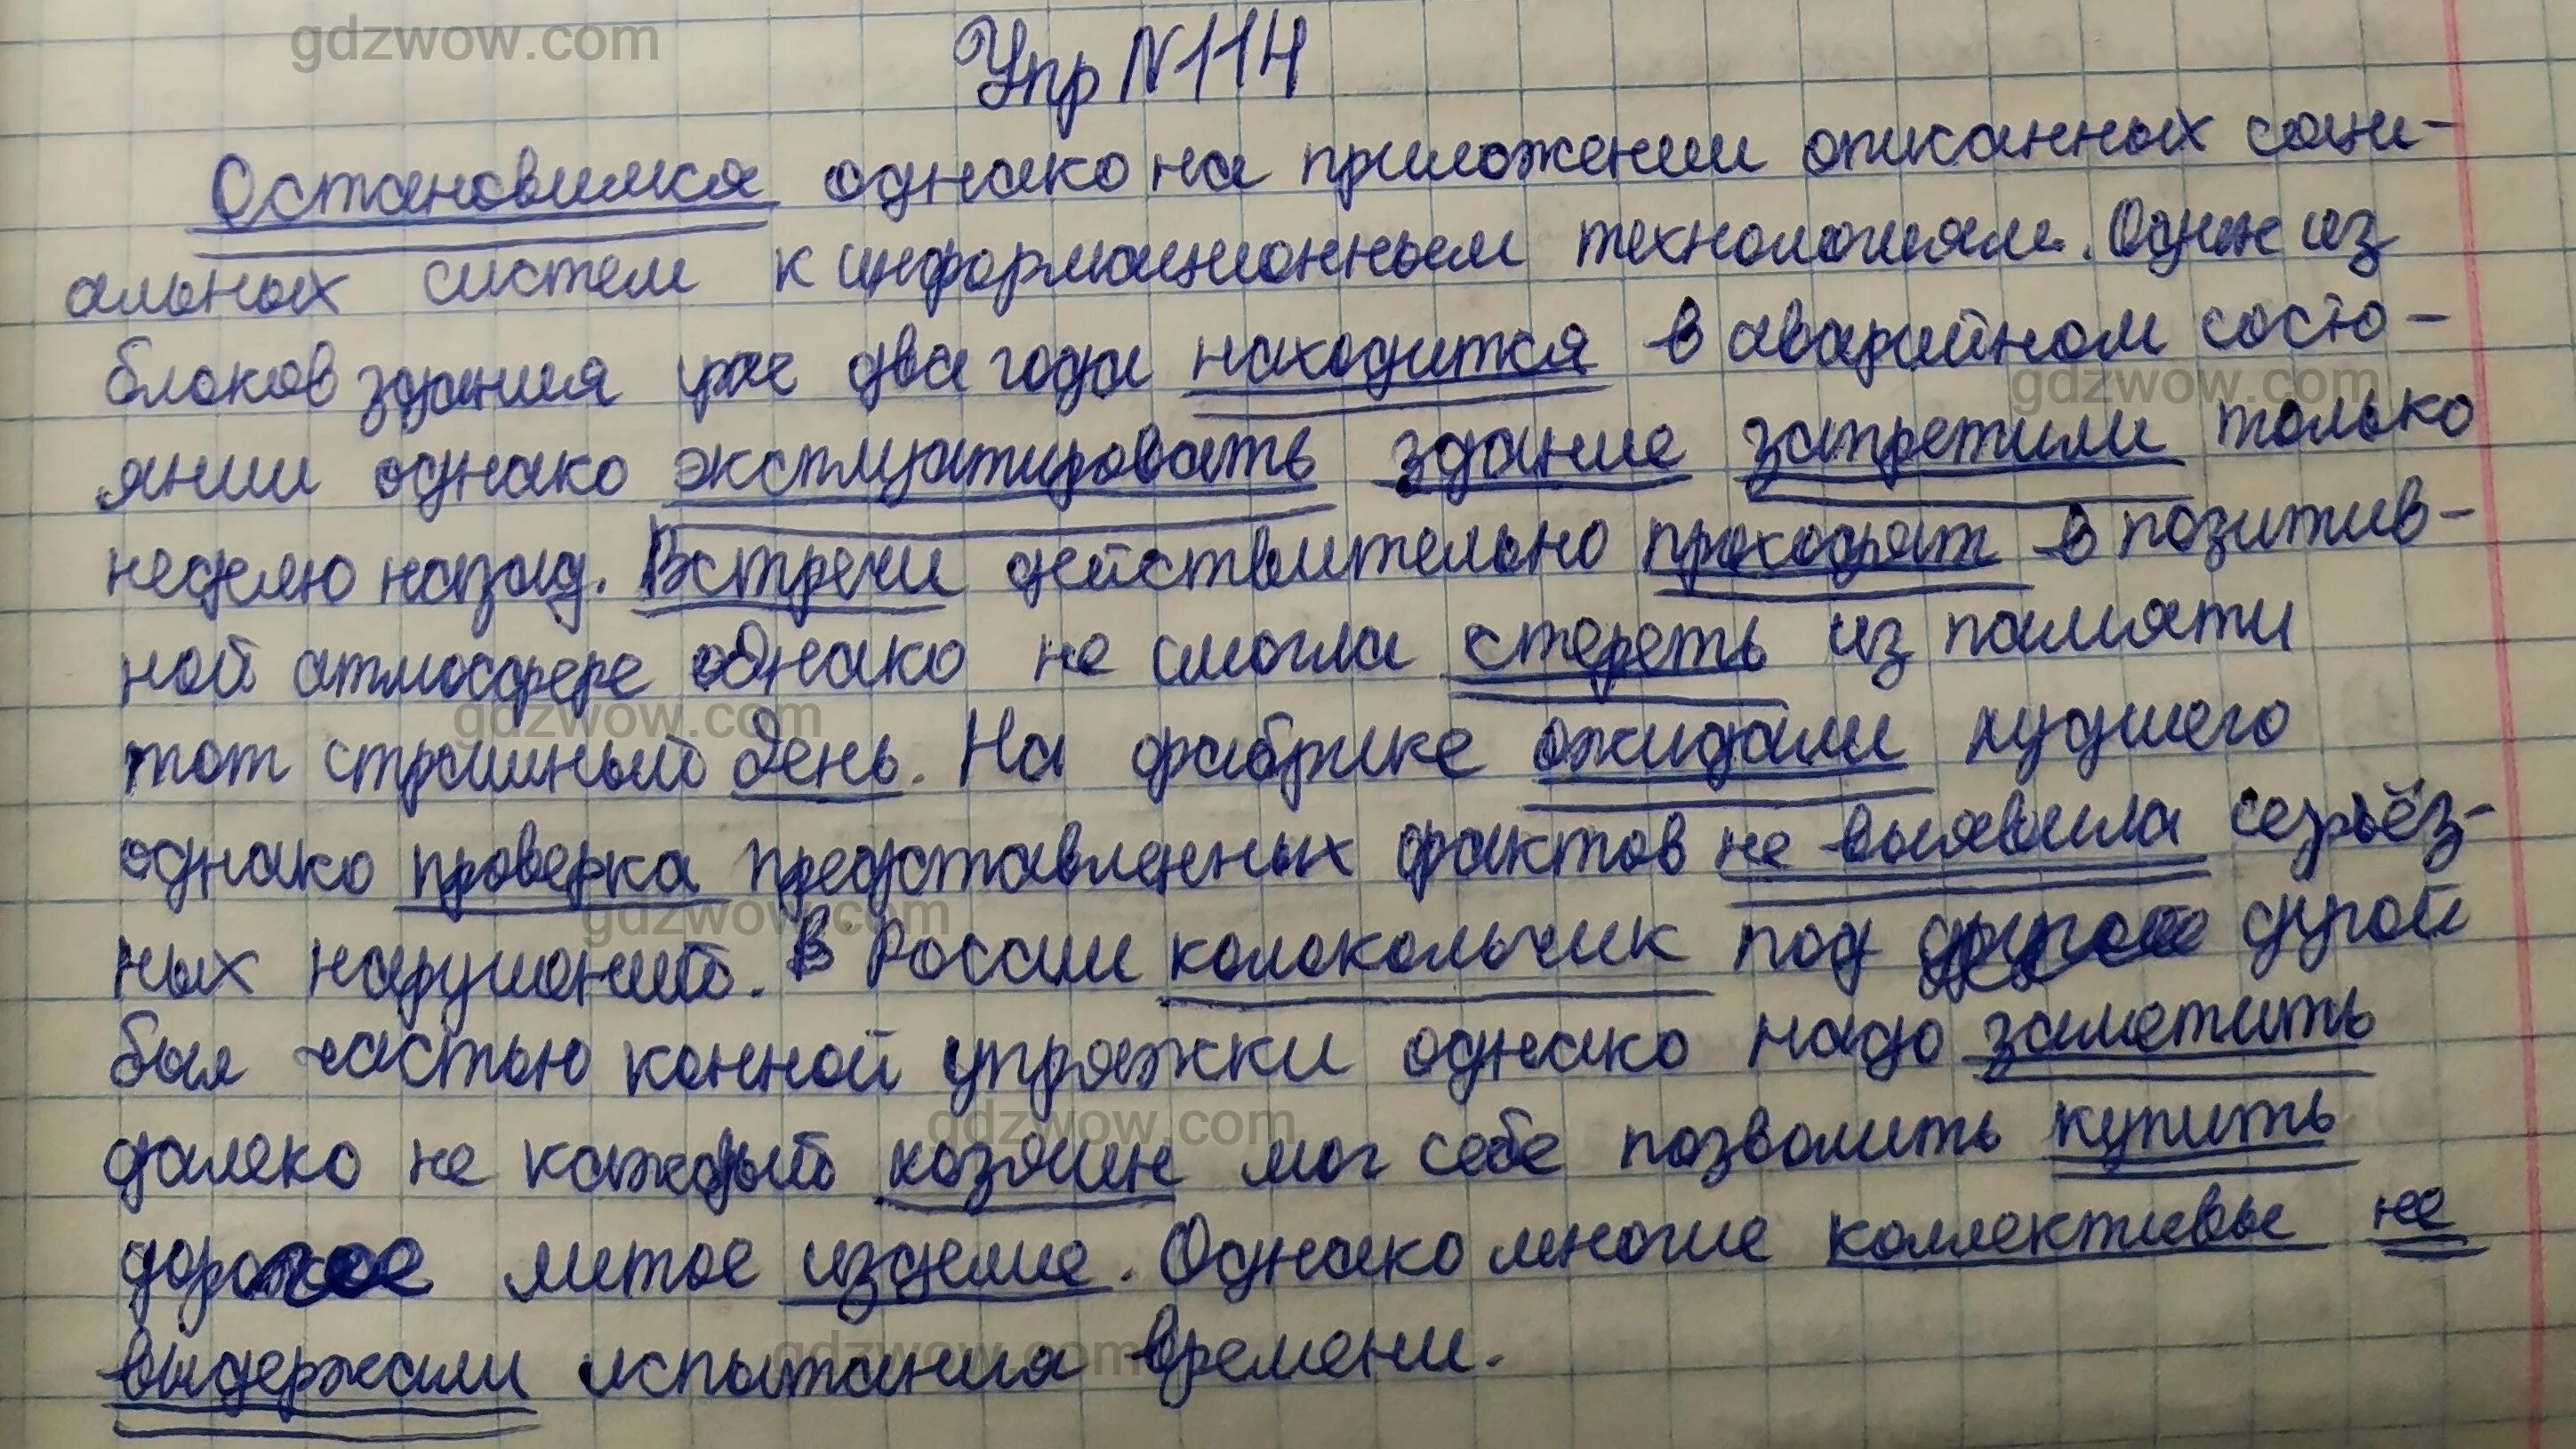 gdzwow.com
Упр N114
Остановимся однако на приложении описанных соци-
альных систем к информационным технологиям. Один из
блоков здания уже два года находится в аварийном состо-
gdzwow.com
янии однако эксплуатировать здание запретили только
неделю назад. Встречи действительно проходят в позитив-
ной атмосфере однако не смогла стереть из памяти
gdzwow.com
тот страшный день. На фабрике ожидали худшего
однако проверка представленных фактов не выявила серьёз-
gdzwow.com
ных нарушений. В России колокольчик под дугой
был частью конной упряжки однако надо заметить
gdzwow.com
далеко не каждый хозяин мог себе позволить купить
дорогое литое изделие. Однако многие коллективы не
gdzwow.com
выдержали испытания времени.